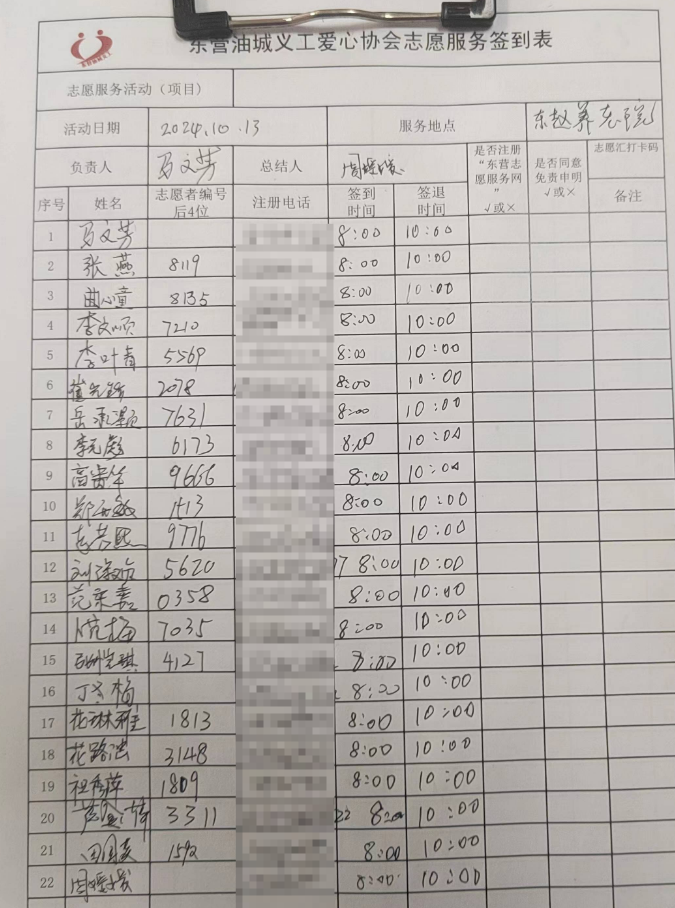 东营油城义工爱心协会志愿服务签到表
志愿服务活动（项目）
活动日期 2024.10.13 服务地点 东赵养老院
负责人 马文芳 总结人 是否注册“东营志愿服务网” √或× 是否同意免责申明 √或× 志愿汇打卡码
序号 姓名 志愿者编号后4位 注册电话 签到时间 签退时间 备注
1 马文芳 8:00 10:00
2 张燕 8119 8:00 10:00
3 曲心童 8135 8:00 10:00
4 李文顺 7210 8:00 10:00
5 李叶青 5569 8:00 10:00
6 2078 8:00 10:00
7 岳承灏 7631 8:00 10:00
8 李元彪 6173 8:00 10:00
9 高贵华 9666 8:00 10:00
10 1413 8:00 10:00
11 9776 8:00 10:00
12 5620 8:00 10:00
13 范荣嘉 0358 8:00 10:00
14 7035 8:00 10:00
15 4127 8:00 10:00
16 8:00 10:00
17 花琳雅 1813 8:00 10:00
18 花路浩 3148 8:00 10:00
19 祖秀萍 1809 8:00 10:00
20 3311 8:00 10:00
21 1592 8:00 10:00
22 8:00 10:00